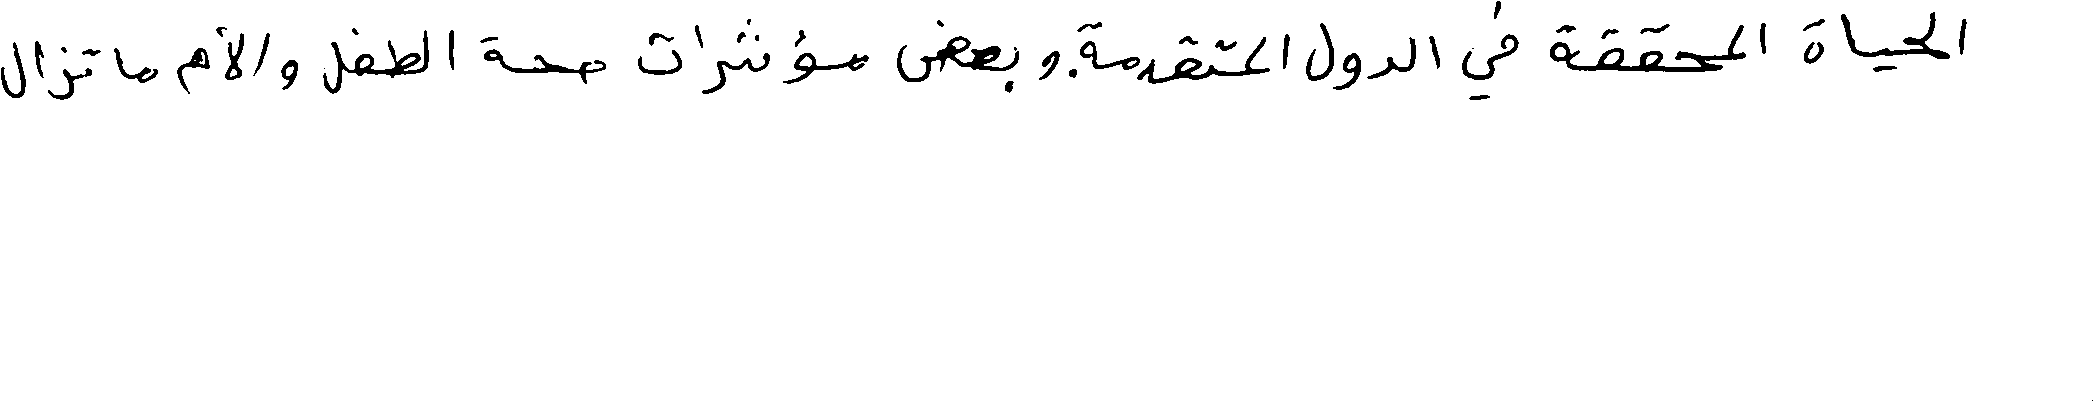 الحياة المحققة في الدول المتقدمة. وبعض مؤشرات صحة الطفل والأم ماتزال